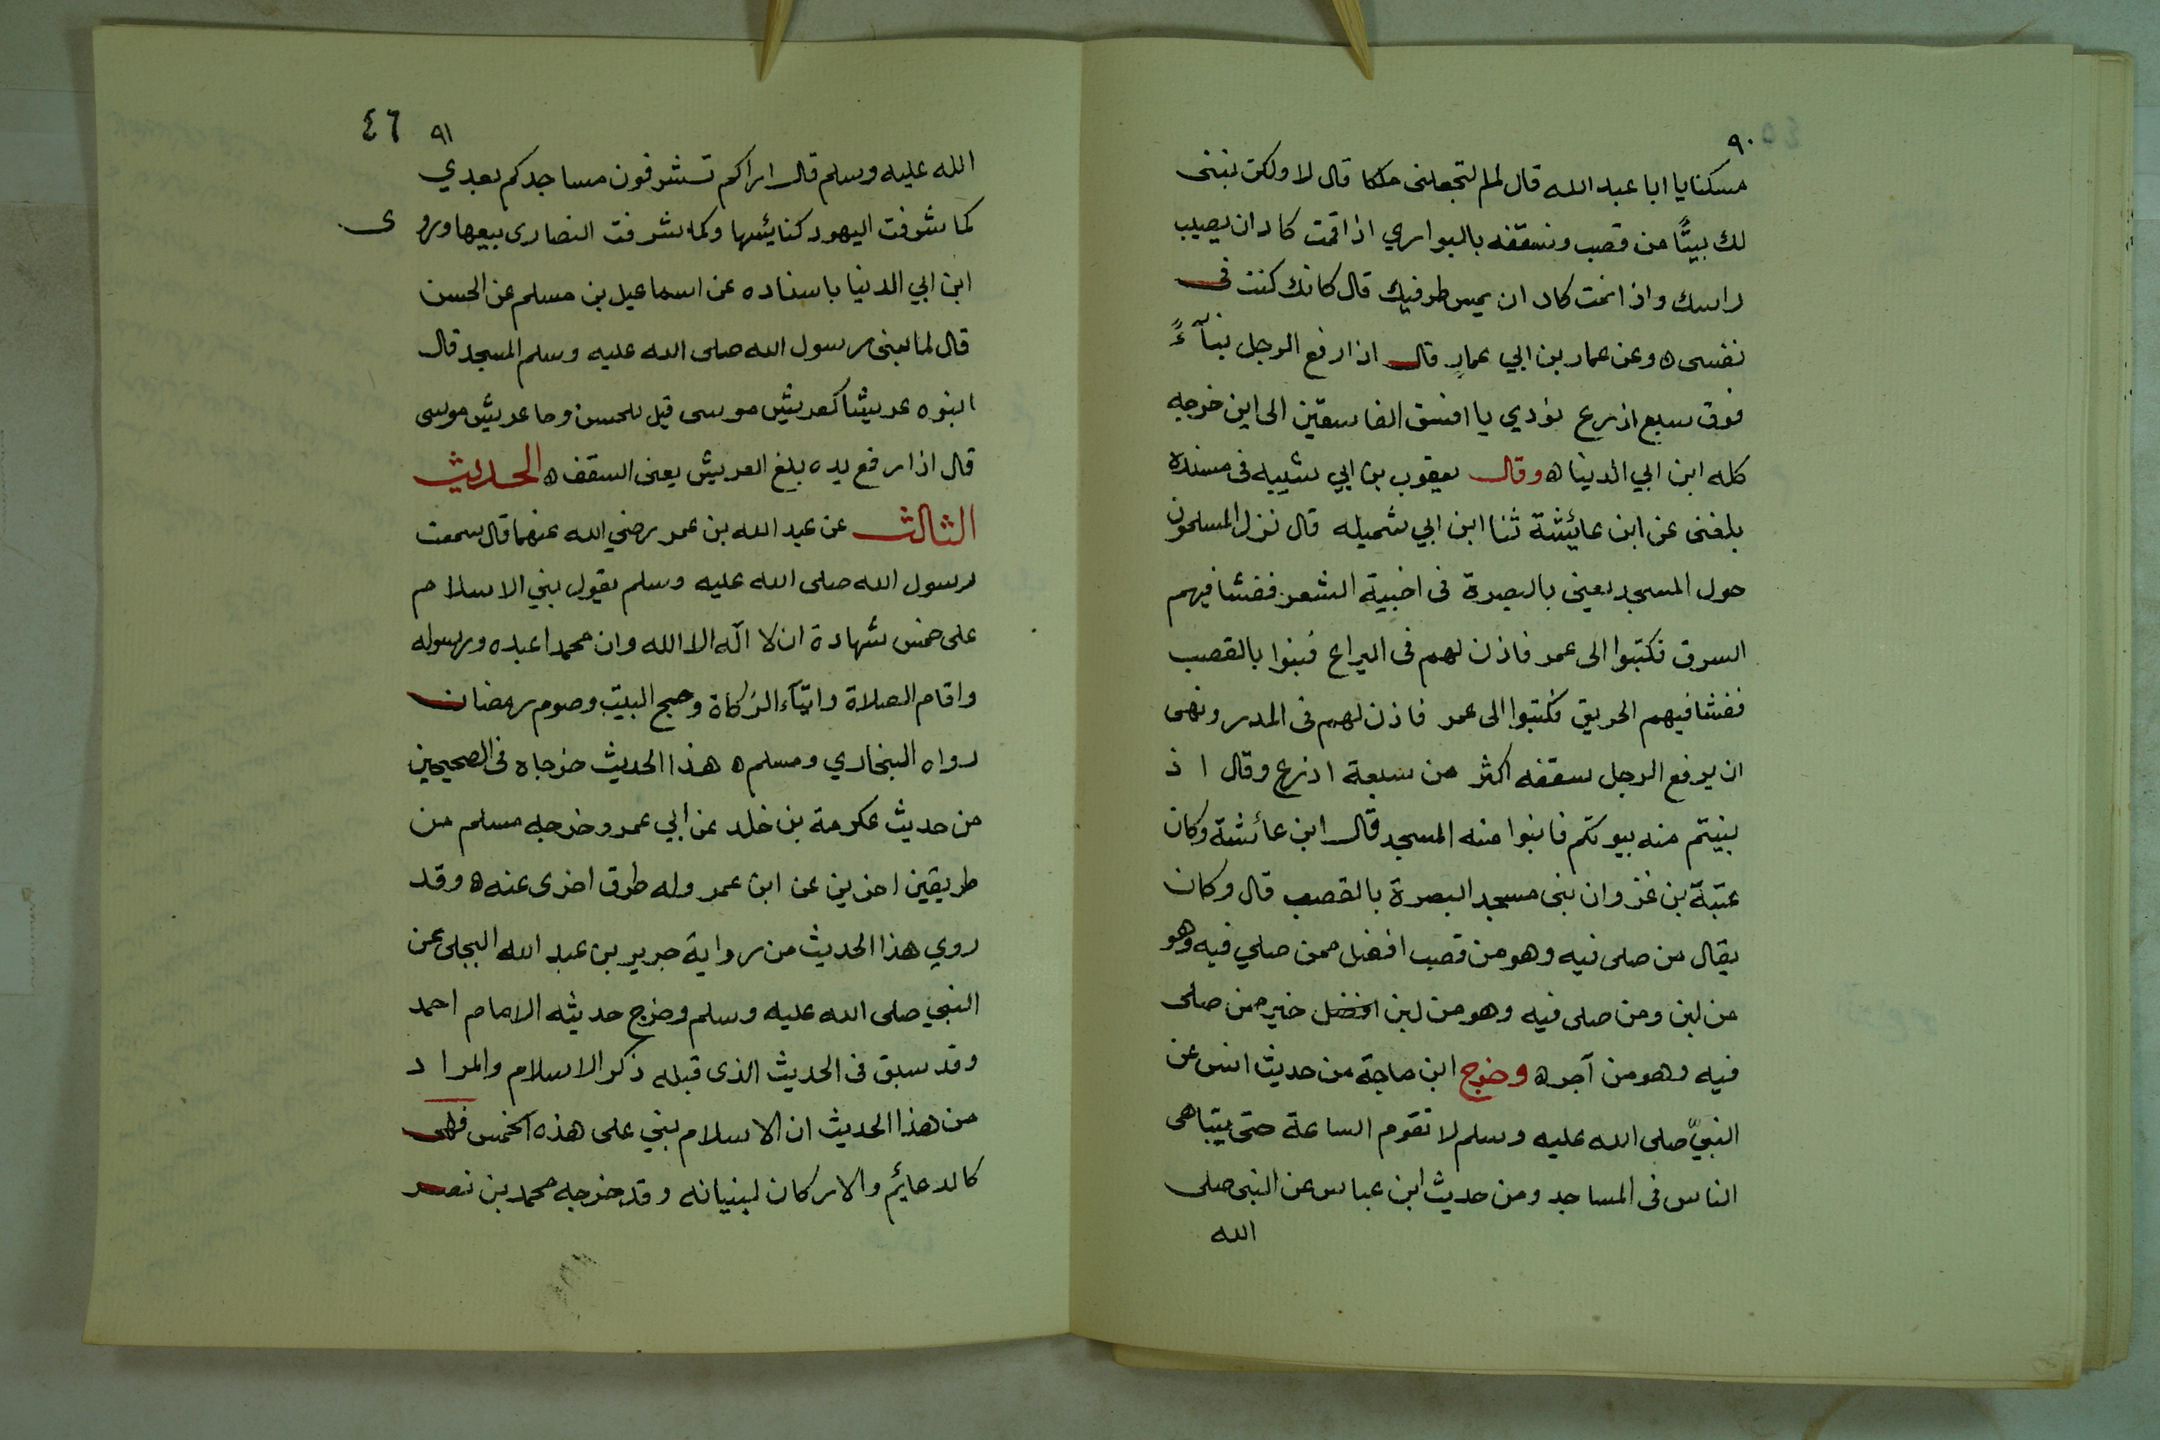 ٩٠
مسكنا يا ابا عبد الله قال لم لتجعلنى ملكا قال لا ولكن نبنى
لك بيتًا من قصب ونسقفه بالبواري اذا قمت كاد ان يصيب
راسك واذا نمت كاد ان يمس طرفيك قال كانك كنت فى
نفسى ه وعن عمار بن ابي عمارٍ قال اذا رفع الرجل بنآءً
فوق سبع اذرع نودي يا افسق الفاسقين الى اين خرجه
كله ابن ابي الدينا ه وقال يعقوب بن ابي شيبه فى مسنده
بلغنى عن ابن عائيشة ثنا ابن ابي شميله قال نزل المسلمون
حول المسجد يعنى بالبصرة فى اخبية الشعر ففشا فيهم
السرق فكتبوا الى عمر فاذن لهم فى اليراع فبنوا بالقصب
ففشا فيهم الحريق فكتبوا الى عمر فاذن لهم فى المدر ونهى
ان يرفع الرجل سقفه اكثر من سبعة اذرع وقال اذ
بنيتم منه بيوتكم فابنوا منه المسجد قال ابن عائشة وكان
عتبة بن غزوان بنى مسجد البصرة بالقصب قال وكان
يقال من صلى فيه وهو من قصب افضل ممن صلي فيه وهو
من لبن ومن صلى فيه وهو من لبن خير ممن صلى
فيه وهو من آجر ه وخرج ابن ماجة من حديث انس عن
النبيّ صلى الله عليه وسلم لا تقوم الساعة حتى يتباهى
الناس فى المساجد ومن حديث ابن عباس عن النبى صلى
الله
٩١ ٤٦
الله عليه وسلم قال اراكم تشرفون مساجدكم بعدي
كما شرفت اليهود كنايئسها وكما شرفت النصارى بيعها وروى
ابن ابي الدنيا باسناده عن اسماعيل بن مسلم عن الحسن
قال لما بنى رسول الله صلى الله عليه وسلم المسجد قال
ابنوه عريشا كعريش موسى قيل للحسن وما عريش موسى
قال اذا رفع يده بلغ العريش يعنى السقف ه الحديث
الثالث عن عبد الله بن عمر رضي الله عنهما قال سمعت
رسول الله صلى الله عليه وسلم يقول بني الاسلام
على خمس شهادة ان لا اله الا الله وان محمدا عبده ورسوله
واقام الصلاة وايتآء الزكاة وحج البيت وصوم رمضان
رواه البخاري ومسلم ه هذا الحديث خرجاه فى الصحيحين
من حديث عكرمة بن خلد عن ابي عمر وخرجه مسلم من
طريقين اخرين عن ابن عمر وله طرق اخرى عنه ه وقد
روي هذا الحديث من رواية جرير بن عبد الله البجلى عن
النبي صلى الله عليه وسلم وخرج حديثه الامام احمد
وقد سبق فى الحديث الذى قبله ذكر الاسلام والمراد
من هذا الحديث ان الاسلام بني على هذه الخمس فهى
كالدعايئم والاركان لبنيانه وقد خرجه محمد بن نصر